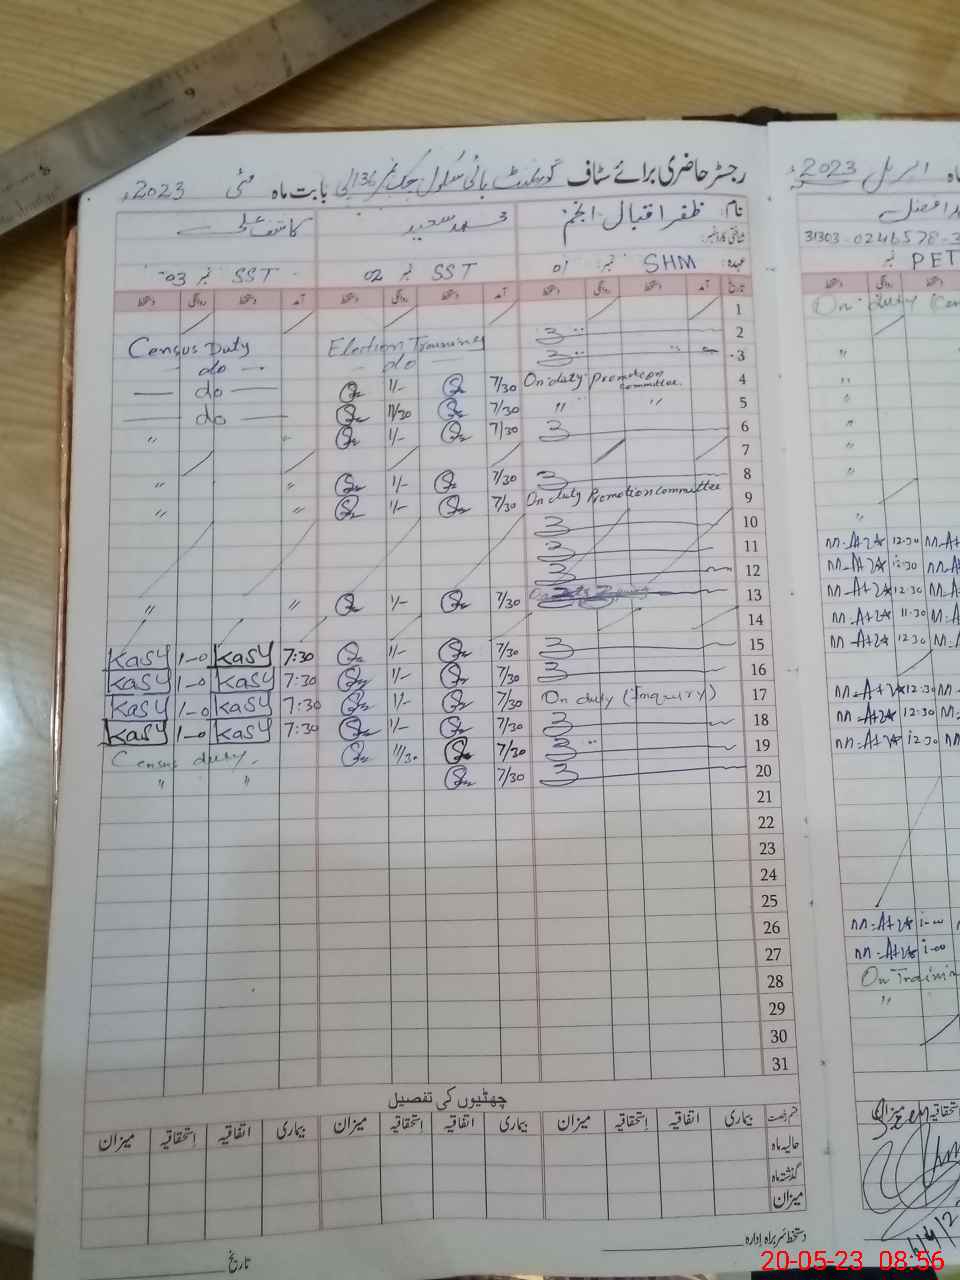 رجسٹر حاضری برائے سٹاف گورنمنٹ ہائی سکول چک نمبر 136 بابت ماہ مئی 2023ء
نام: ظفر اقبال انجم محمد سعید کاشف علی
شناختی کارڈ نمبر:
عہدہ: SHM نمبر 01 SST نمبر 02 SST نمبر 03
تاریخ آمد دستخط روانگی دستخط آمد دستخط روانگی دستخط آمد دستخط روانگی دستخط
1
Census Duty Election Training 2
do do 3
do 1/- 7/30 On duty Promotion committee. 4
do 11/30 7/30 〃 〃 5
〃 〃 1/- 7/30 6
7
〃 〃 1/- 7/30 8
〃 〃 1/- 7/30 On duty Promotion committee 9
10
11
12
〃 〃 1/- 7/30 13
14
KASY 1-0 KASY 7:30 1/- 7/30 15
KASY 1-0 KASY 7:30 1/- 7/30 16
KASY 1-0 KASY 7:30 1/- 7/30 On duty (Inquiry) 17
KASY 1-0 KASY 7:30 1/- 7/30 18
Census duty. 11/30 7/30 19
〃 〃 7/30 20
21
22
23
24
25
26
27
28
29
30
31
چھٹیوں کی تفصیل
قسم رخصت بیماری اتفاقیہ استحقاقیہ میزان بیماری اتفاقیہ استحقاقیہ میزان بیماری اتفاقیہ استحقاقیہ میزان
حالیہ ماہ
گذشتہ ماہ
میزان
دستخط سربراہ ادارہ
تاریخ
ماہ اپریل 2023ء
31303-0246578-3
نمبر PET
دستخط روانگی دستخط
On duty
〃
〃
〃
〃
〃
〃
M-At2* 12.30 M-A
M-At2* 12-30 M-A
M-At2* 12.30 M-A
M-At2* 11.30 M-A
M-At2* 12.30 M-
M-At2* 12:30 M-A
M-At2* 12.30 M-A
M-At2* 12-30 M-A
M-At2* 1-00
M-At2* 1-00
On Training
〃
میزان استحقاقیہ
20-05-23 08:56